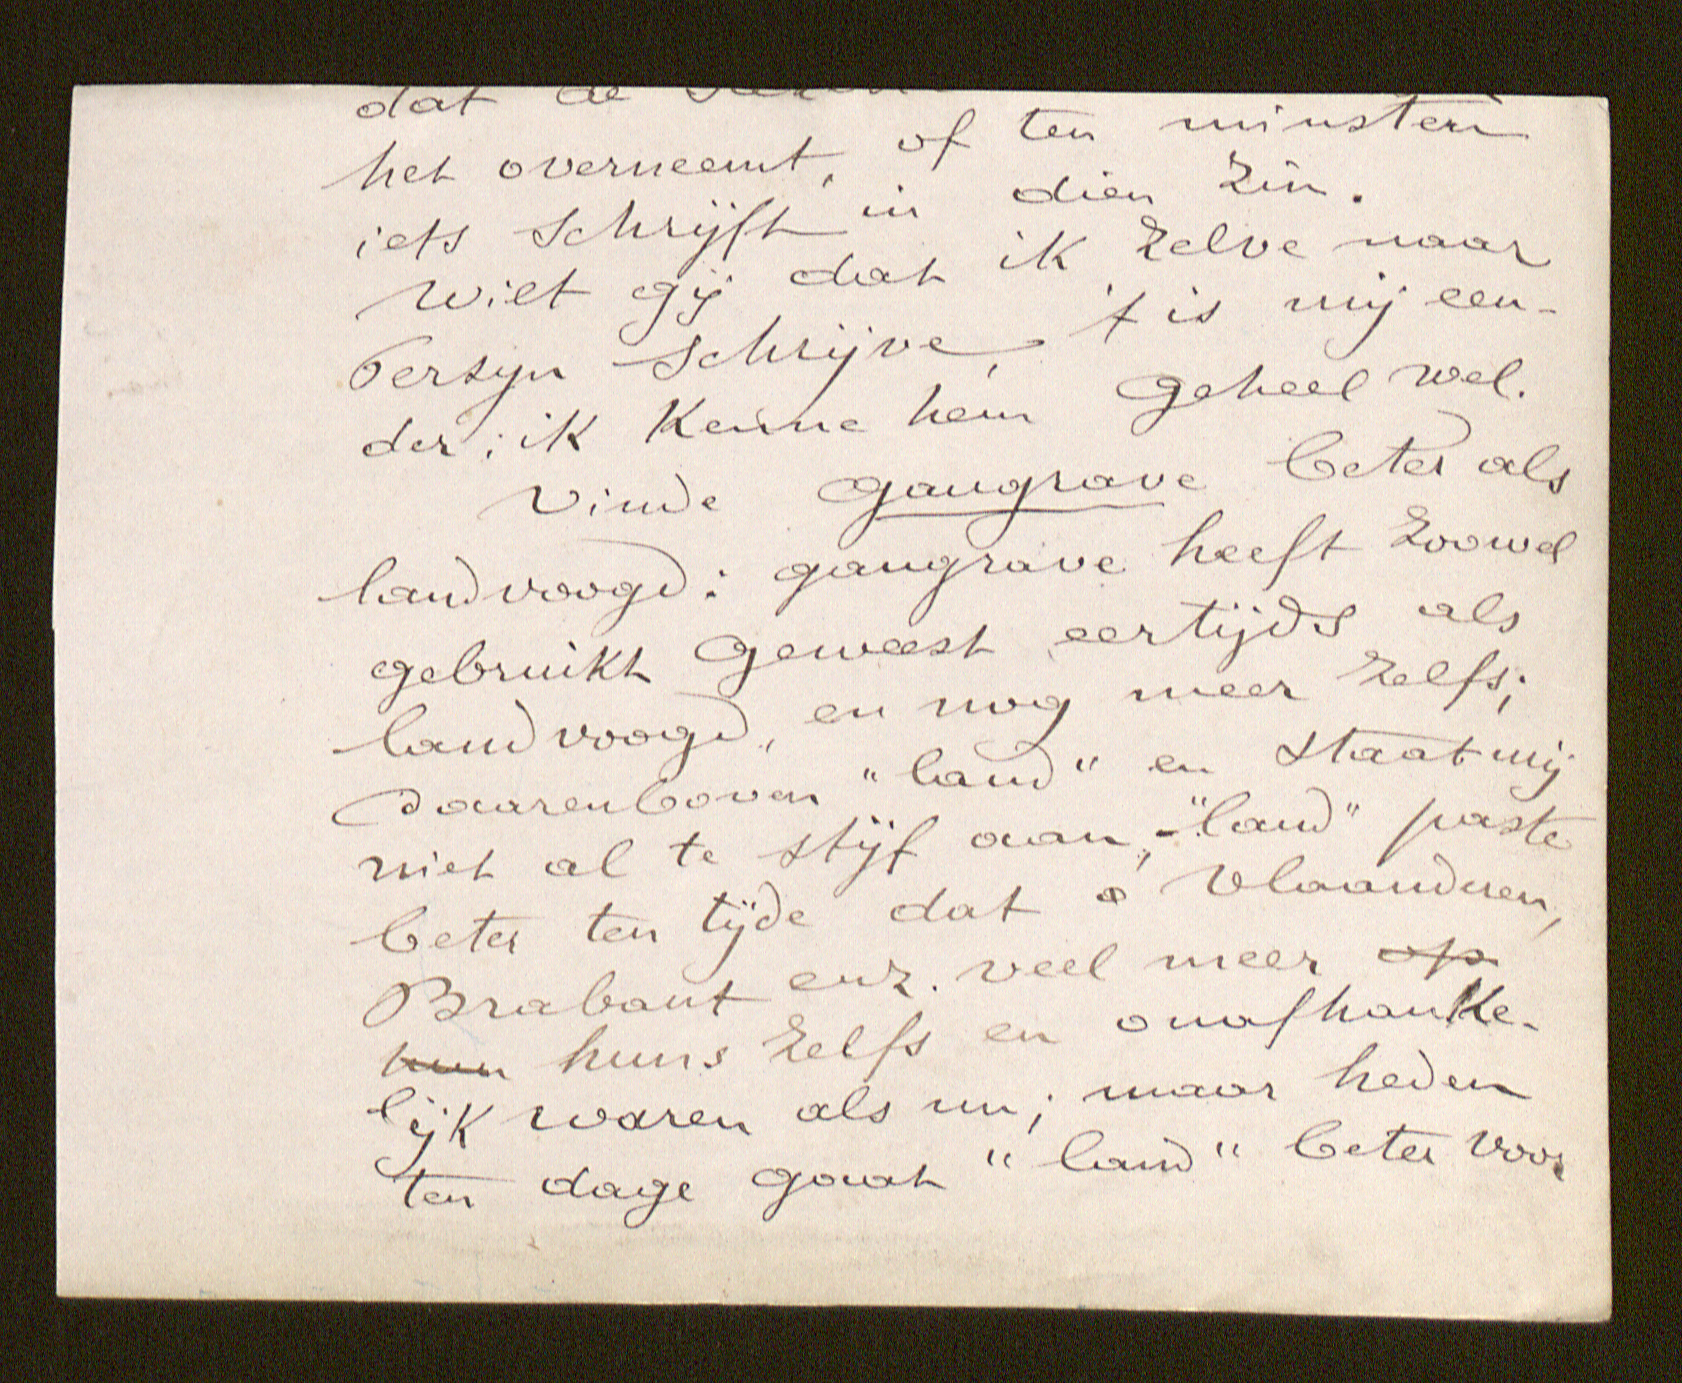 dat de
het overneemt, of ten minsten
iets schrijft in dien zin.
Wilt gij dat ik zelve naar
Persyn schrijve, 't is mij een-
der; ik kenne hem geheel wel.
Vinde gaugrave beter als
landvoogd: gaugrave heeft zoowel
gebruikt geweest eertijds als
landvoogd, en nog meer zelfs;
daarenboven "land" en staat mij
niet al te stijf aan, - "land" paste
beter ten tijde dat Vlaanderen,
Brabant enz. veel meer op
hun huns zelfs en onafhanke-
lijk waren als nu; maar heden
ten dage gaat "land" beter voor